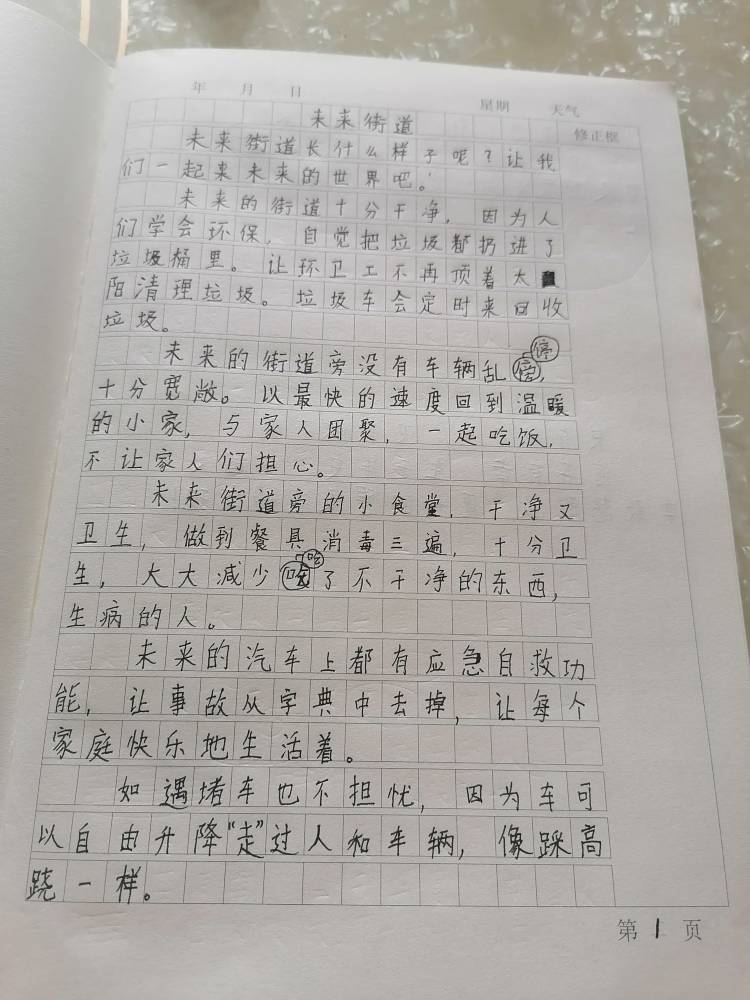 年 月 日 星期 天气
未来街道 修正框
未来街道长什么样子呢？让我
们一起来未来的世界吧。
未来的街道十分干净，因为人
们学会环保，自觉把垃圾都扔进了
垃圾桶里。让环卫工不再顶着太
阳清理垃圾。垃圾车会定时来回收
垃圾。
停
未来的街道旁没有车辆乱傍，
十分宽敞。以最快的速度回到温暖
的小家，与家人团聚，一起吃饭，
不让家人们担心。
未来街道旁的小食堂，干净又
卫生，做到餐具消毒三遍，十分卫
吃
生，大大减少吃了不干净的东西，
生病的人。
未来的汽车上都有应急自救功
能，让事故从字典中去掉，让每个
家庭快乐地生活着。
如遇堵车也不担忧，因为车可
以自由升降“走”过人和车辆，像踩高
跷一样。
第1页